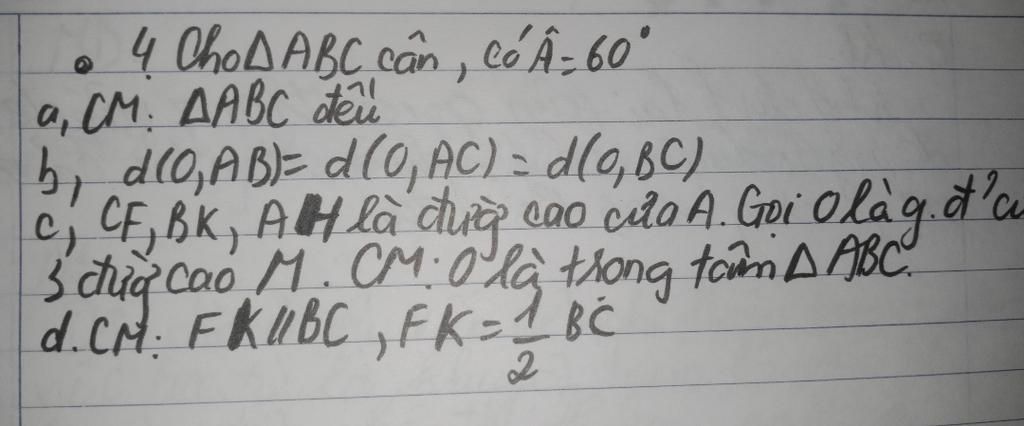 • 4 Cho ΔABC cân, có Â = 60°
a, CM: ΔABC đều
b, d(O,AB) = d(O,AC) = d(O,BC)
c, CF, BK, AH là đường cao của Δ. Gọi O là g.đ' củ
3 đường cao M. CM: O là trong tâm Δ ABC.
d. CM: FK // BC, FK = 1/2 BC